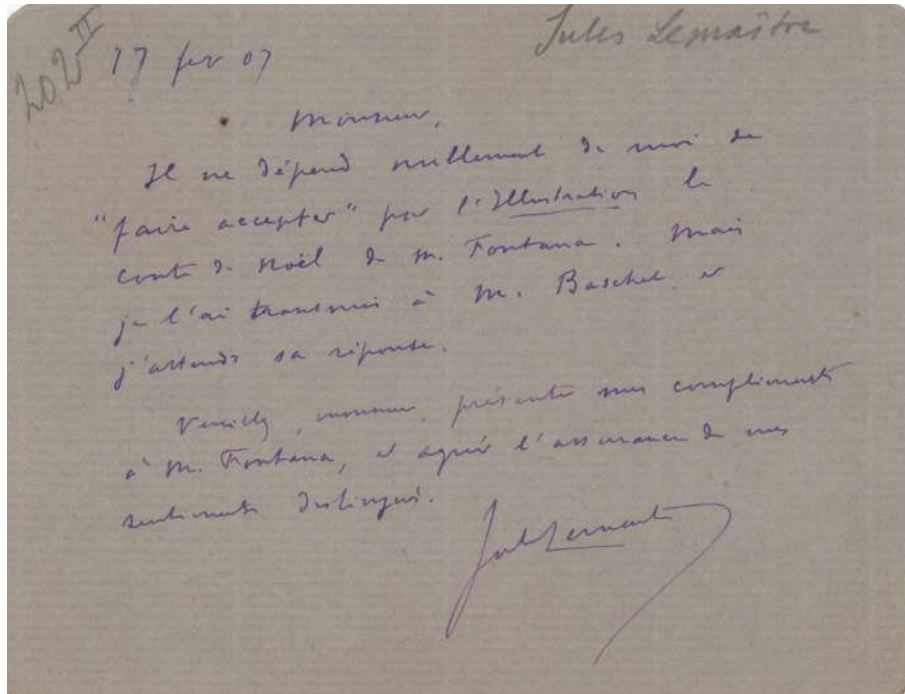 Jules Lemaître
202 II
17 fev 07
Monsieur,
Il ne dépend nullement de moi de
"faire accepter" par l'Illustration le
conte de Noël de M. Fontana. Mais
je l'ai transmis à M. Baschet et
j'attends sa réponse.
Veuillez, monsieur, présenter mes compliments
à M. Fontana, et agréer l'assurance de mes
sentiments distingués.
Jules Lemaitre